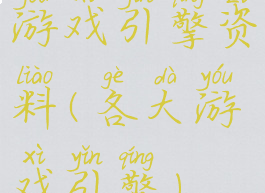 游戏引擎资
liào gè dà yóu
料(各大游
xì yǐn qíng
戏引擎)